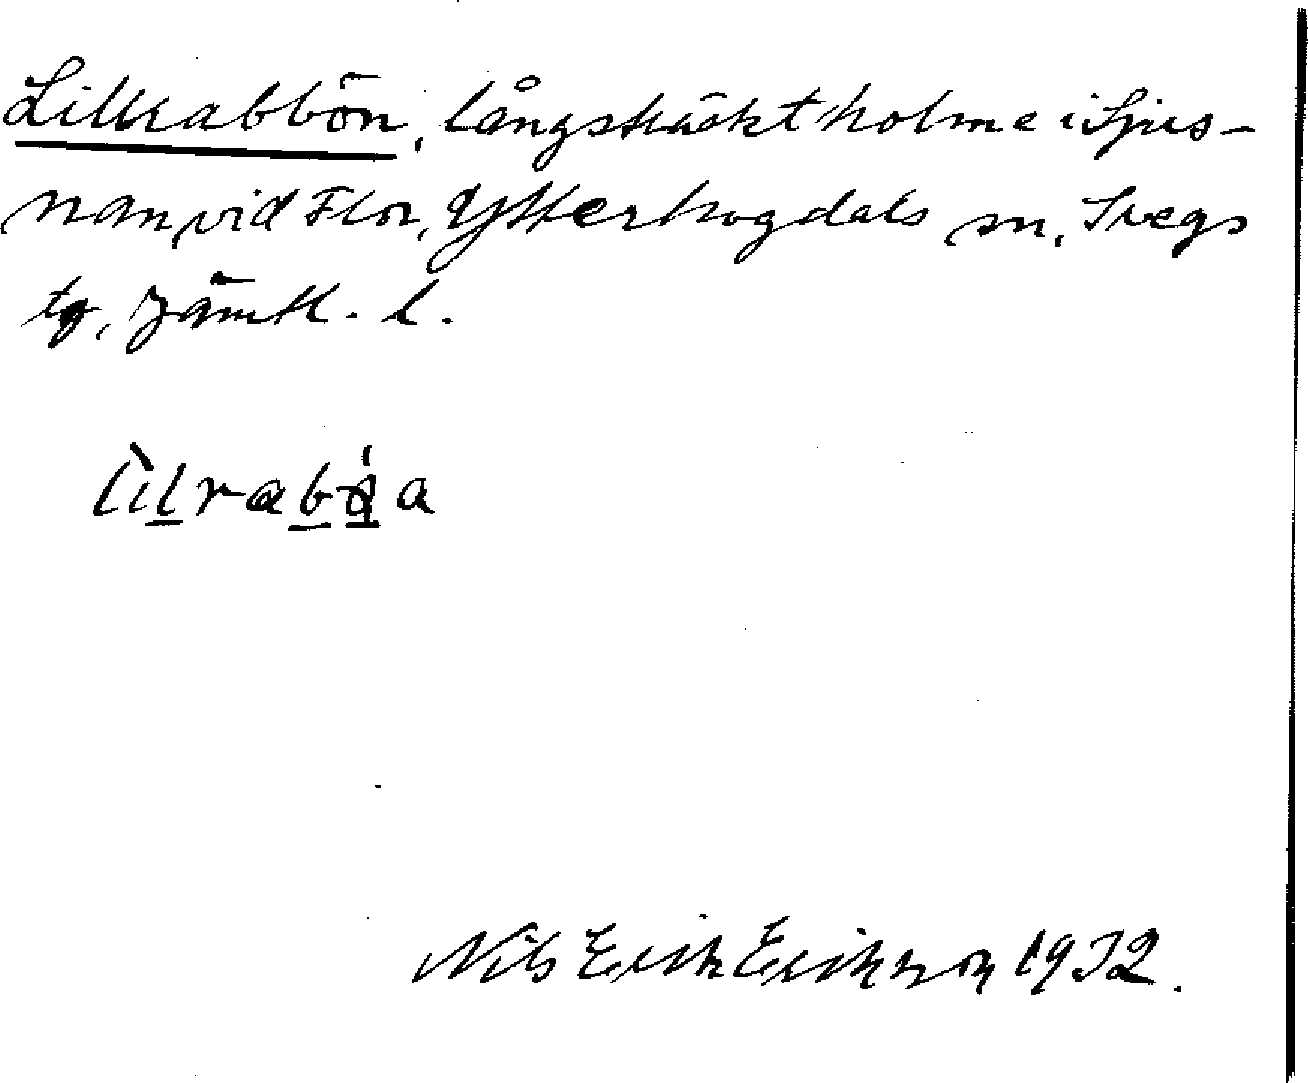 Lillrabbön, långsträckt holme i Ljus-
nan, vid Flor, Ytterhogdals sn, Svegs
tg, Jämtl. l.
Nils Erik Erikson 1932.